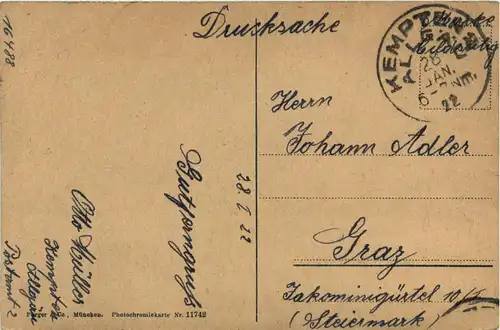 16488
Drucksache
KEMPTEN
ALLGÄU
26
JAN.
6-7 NM.
22
Herrn
Johann Adler
Graz
Jakominigürtel 10/I
(Steiermark)
28 I 22
Otto Müller
Kempten
Allgäu
Postamt 2
& Co., München. Photochromiekarte Nr. 11742